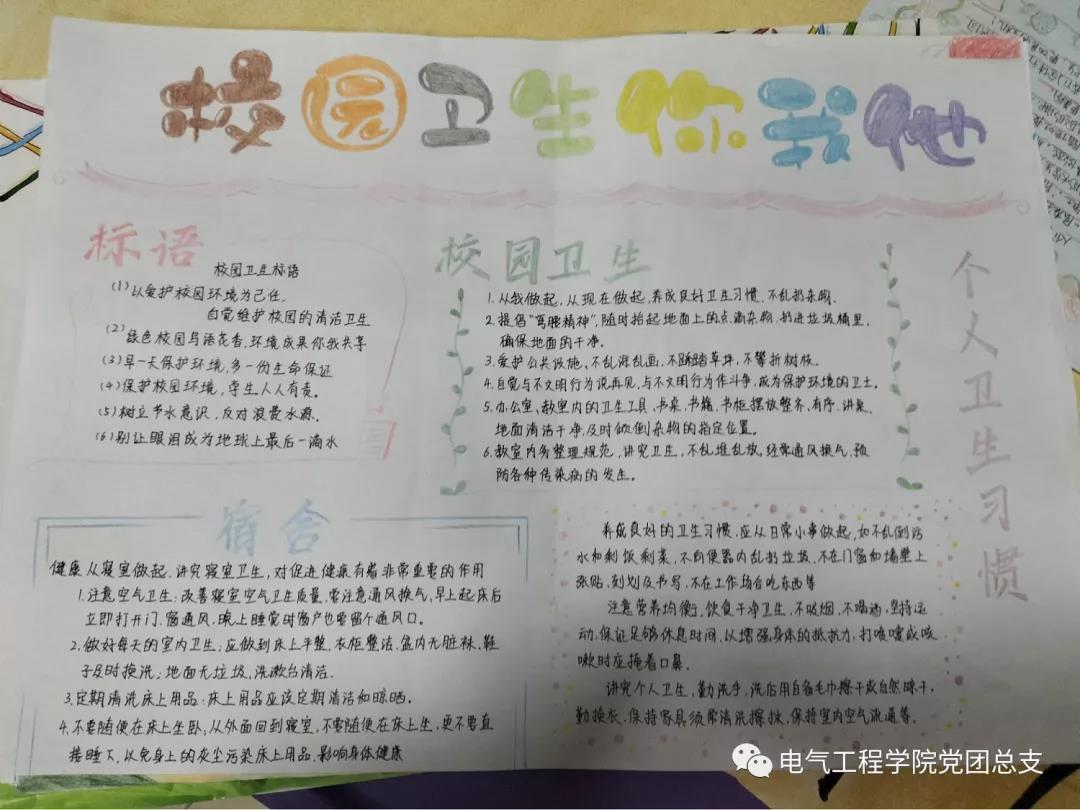 校园卫生你我他
标语
校园卫生标语
(1)以爱护校园环境为己任,
自觉维护校园的清洁卫生
(2)绿色校园鸟语花香,环境成果你我共享
(3)早一天保护环境,多一份生命保证
(4)保护校园环境,学生人人有责。
(5)树立节水意识,反对浪费水源.
(6)别让眼泪成为地球上最后一滴水
校园卫生
1.从我做起,从现在做起,养成良好卫生习惯,不乱扔杂物.
2.提倡"弯腰精神",随时拾起地面上的点滴杂物.扔进垃圾桶里,
确保地面的干净.
3.爱护公共设施、不乱涂乱画,不踩踏草坪,不攀折树枝。
4.自觉与不文明行为说再见,与不文明行为作斗争,成为保护环境的卫士.
5.办公室、教室内的卫生工具、书桌、书籍、书柜摆放整齐、有序.讲桌、
地面清洁干净,及时倾倒杂物的指定位置。
6.教室内务整理规范,讲究卫生,不乱堆乱放,经常通风换气,预
防各种传染病的发生。
个人卫生习惯
宿舍
健康从寝室做起.讲究寝室卫生,对促进健康有着非常重要的作用
1.注意空气卫生:改善寝室空气卫生质量,要注意通风换气,早上起床后
立即打开门、窗通风.晚上睡觉时窗户也要留个通风口。
2.做好每天的室内卫生:应做到床上平整,衣柜整洁.盆内无脏袜,鞋
子及时换洗;地面无垃圾,洗漱台清洁.
3.定期清洗床上用品:床上用品应该定期清洁和晾晒。
4.不要随便在床上坐卧,从外面回到寝室,不要随便在床上坐,更不要直
接睡下,以免身上的灰尘污染床上用品.影响身体健康
养成良好的卫生习惯,应从日常小事做起,如不乱倒污
水和剩饭剩菜、不向便器内乱扔垃圾、不在门窗和墙壁上
张贴,刻划及书写,不在工作场合吃东西等
注意营养均衡,饮食干净卫生,不吸烟,不喝酒,坚持运
动,保证足够休息时间,以增强身体的抵抗力,打喷嚏或咳
嗽时应掩着口鼻。
讲究个人卫生,勤洗手,洗后用自备毛巾擦干或自然晾干,
勤换衣.保持家具须常清洗擦抹,保持室内空气流通等.
电气工程学院党团总支